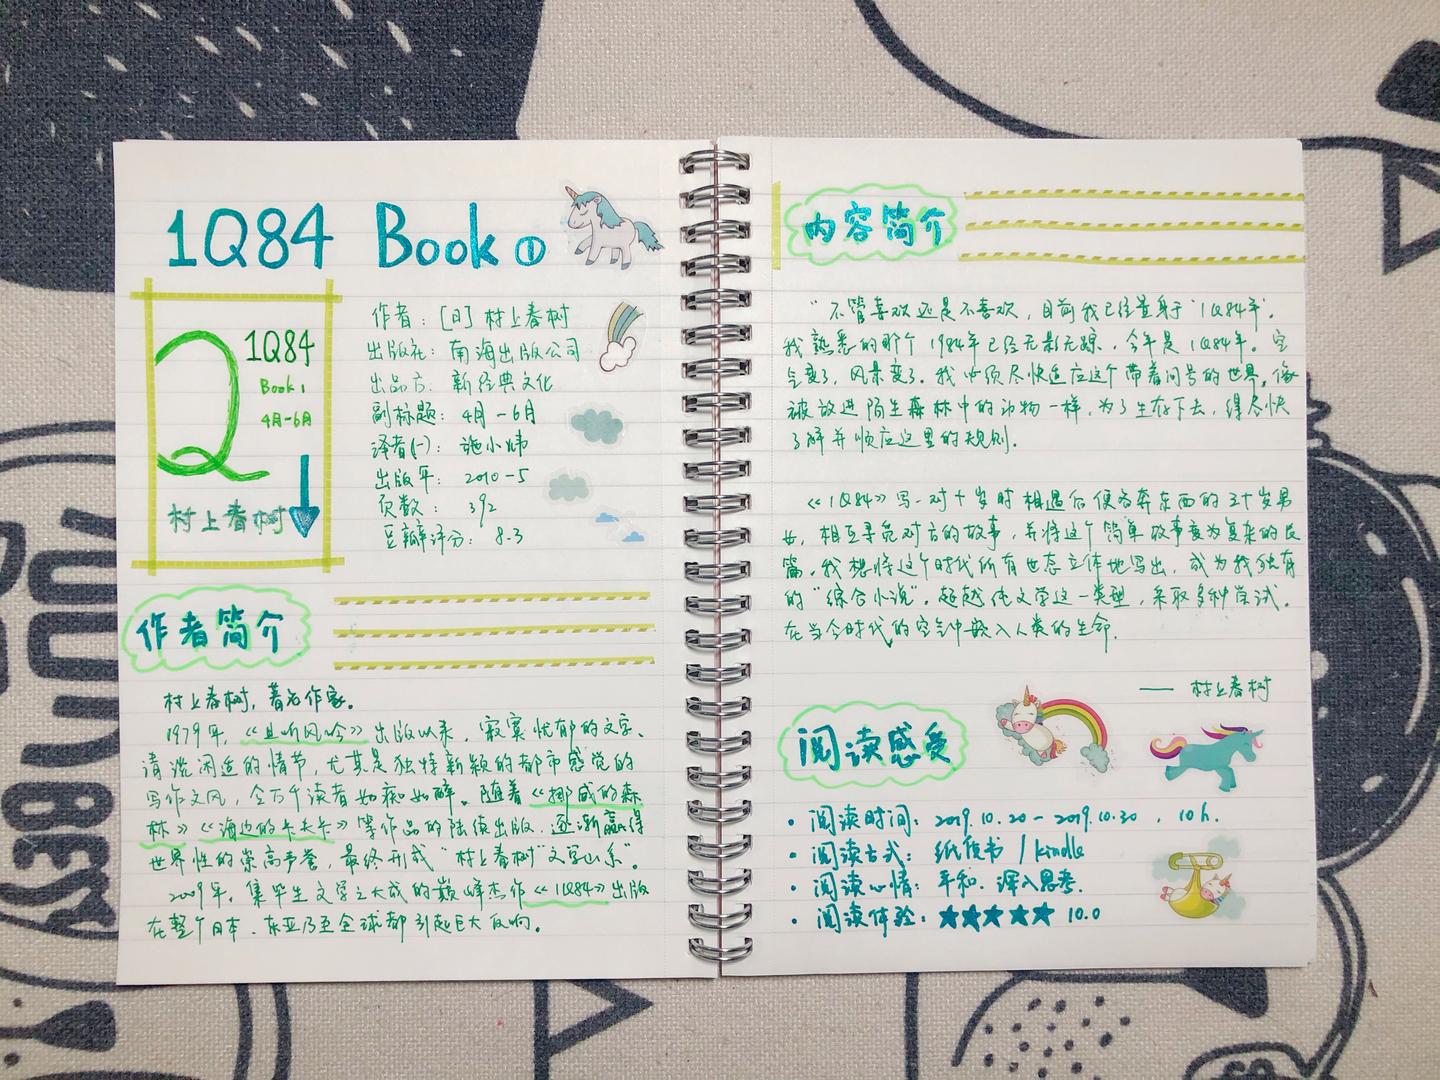 1Q84 Book ①
1Q84
Book 1
4月-6月
村上春树
作者：[日] 村上春树
出版社：南海出版公司
出品方：新经典文化
副标题：4月-6月
译者(一)：施小炜
出版年：2010-5
页数：392
豆瓣评分：8.3
作者简介
村上春树，著名作家。
1979年，《且听风吟》出版以来，寂寞忧郁的文字、
清淡闲适的情节，尤其是独特新颖的都市感觉的
写作文风，令万千读者如痴如醉。随着《挪威的森
林》《海边的卡夫卡》等作品的陆续出版，逐渐赢得
世界性的崇高声誉，最终形成“村上春树”文字山系”。
2009年，集毕生文学之大成的巅峰杰作《1Q84》出版
在整个日本、东亚乃至全球都引起巨大反响。
内容简介
“不管喜欢还是不喜欢，目前我已经置身于‘1Q84年’。
我熟悉的那个1984年已经无影无踪，今年是1Q84年。空
气变了，风景变了。我必须尽快适应这个带着问号的世界。像
被放进陌生森林中的动物一样，为了生存下去，得尽快
了解并顺应这里的规则。
《1Q84》写一对十岁时相遇后便各奔东西的三十岁男
女，相互寻觅对方的故事，并将这个简单故事变为复杂的长
篇。我想将这个时代所有世态立体地写出，成为我独有
的“综合小说”。超越纯文学这一类型，采取多种尝试。
在当今时代的空气中嵌入人类的生命。
—— 村上春树
阅读感受
• 阅读时间：2019.10.20-2019.10.30，10h.
• 阅读方式：纸质书 / kindle
• 阅读心情：平和．深入思考．
• 阅读体验：★★★★★ 10.0
YOU
BES